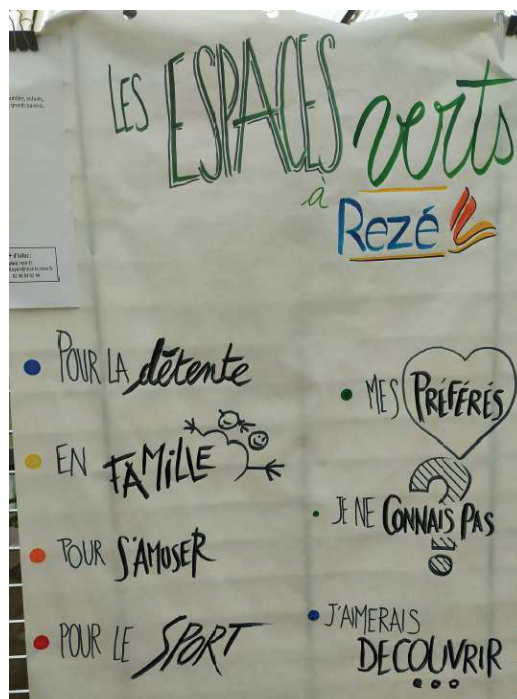 LES ESPACES verts
à Rezé
+ d'infos :
• POUR LA détente
• EN FAMILLE
• POUR S'AMUSER
• POUR LE SPORT
• MES PRÉFÉRÉS
• JE NE CONNAIS PAS
?
• J'AIMERAIS
DECOUVRIR
...